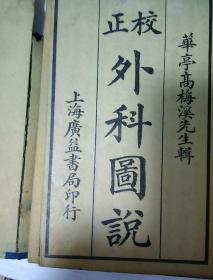 華亭高梅溪先生輯
校正
外科圖說
上海廣益書局印行